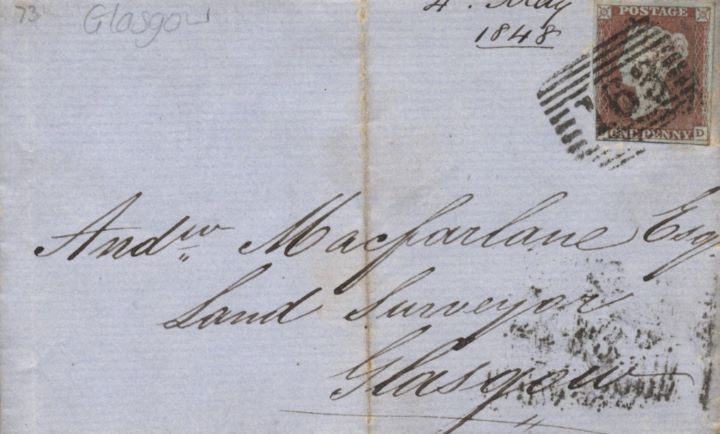 73
Glasgow
4. May
1848
POSTAGE
ONE PENNY
D
Andw Macfarlane Esq
Land Surveyor
Glasgow